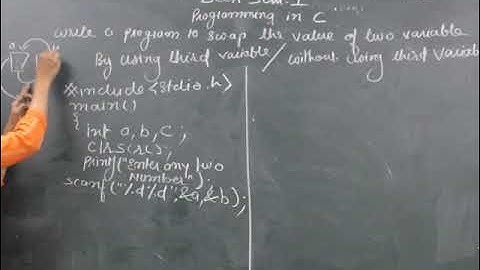 Sem-I
Programming in C
write a program to swap the value of two variable
By using third variable / without using third variable
#include<stdio.h>
main()
{
int a, b, c;
clrscr();
printf("Enter any two
Number");
scanf("%d%d",&a,&b);